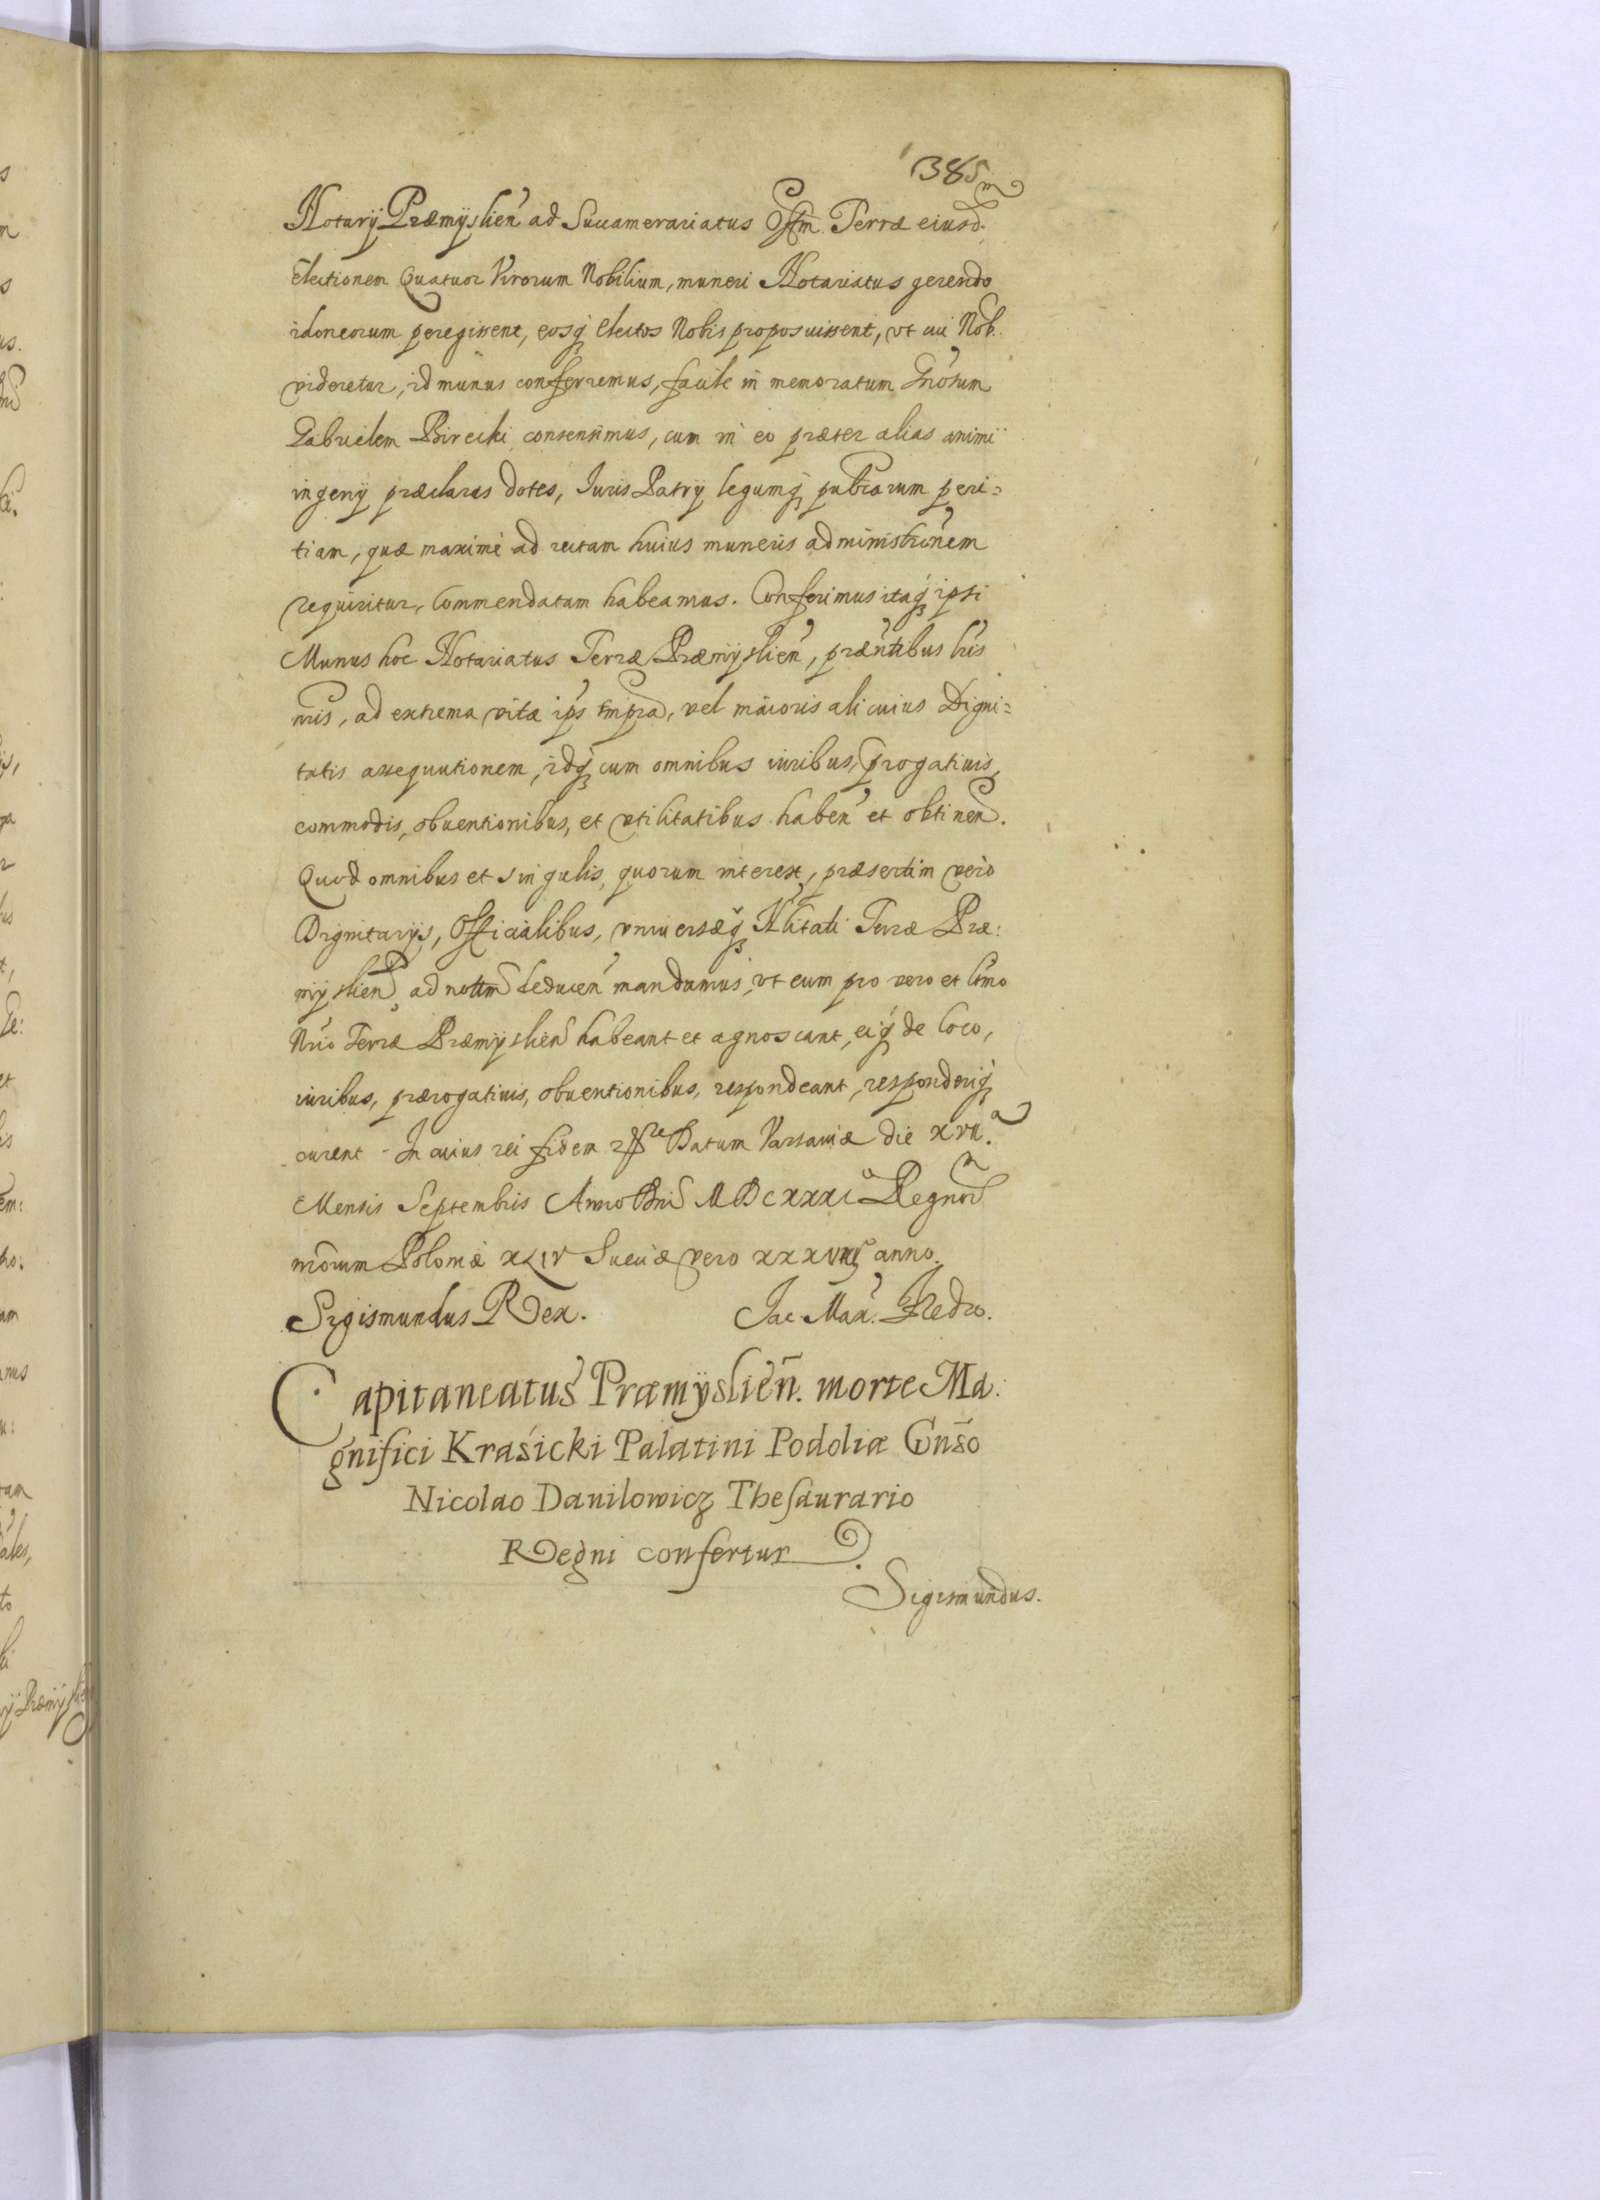 385
Notarÿ Præmÿslien̄ ad Succamerariatus Offm̄ Terræ eiusd.
Electionem Quatuor Virorum Nobilium, muneri Notariatus gerendo
idoneorum peregissent, eosq̨ Electos Nobis proposuissent, vt cui Nob.
videretur, id munus conferremus, facile in memoratum Gnōsum
Gabrielem Birecki consensimus, cum in eo præter alias animi
ingenÿ præclaras dotes, Iuris Patrÿ legumq̨ publcarum peri=
tiam, quæ maximè ad rectam huius muneris administrōnem
requiritur, Commendatam habeamus. Conferimus itaq̨ ipsi
Munus hoc Notariatus Terræ Præmÿslien̄, præn̄tibus lr̄is
nr̄is, ad extrema vitæ ips̄ tmp̄ra, vel maioris alicuius Digni=
tatis assequutionem, idq̨ cum omnibus iuribus, progatiuis,
commodis, obuentionibus, et vtilitatibus haben̄ et obtinen̄.
Quod omnibus et singulis, quorum interest, præsertim vero
Dignitarÿs, Officialibus, vniuersæq̨ Nlitati Terræ Præ:
mÿslien̄ ad notm̄ deducen̄ mandamus, vt eum pro vero et ltm̄o
Nr̄io Terræ Præmÿslien̄ habeant et agnoscant, eiq̨ de loco,
iuribus, prærogatiuis, obuentionibus, respondeant, responderiq̨
curent. In cuius rei fidem Datum Varsauiæ die XVII.a
Mensis Septembris Anno Dn̄i MDCXXXI Regnor̄
nrōrum Poloniæ XLIV Sueciæ vero anno.
Sigismundus Rex. Jac. Max. Fredro.
Capitaneatus Præmÿslien̄. morte Ma:
gnifici Krasicki Palatini Podoliæ Gn̄so
Nicolao Danilowicz Thesaurario
Regni confertur.
Sigismundus.